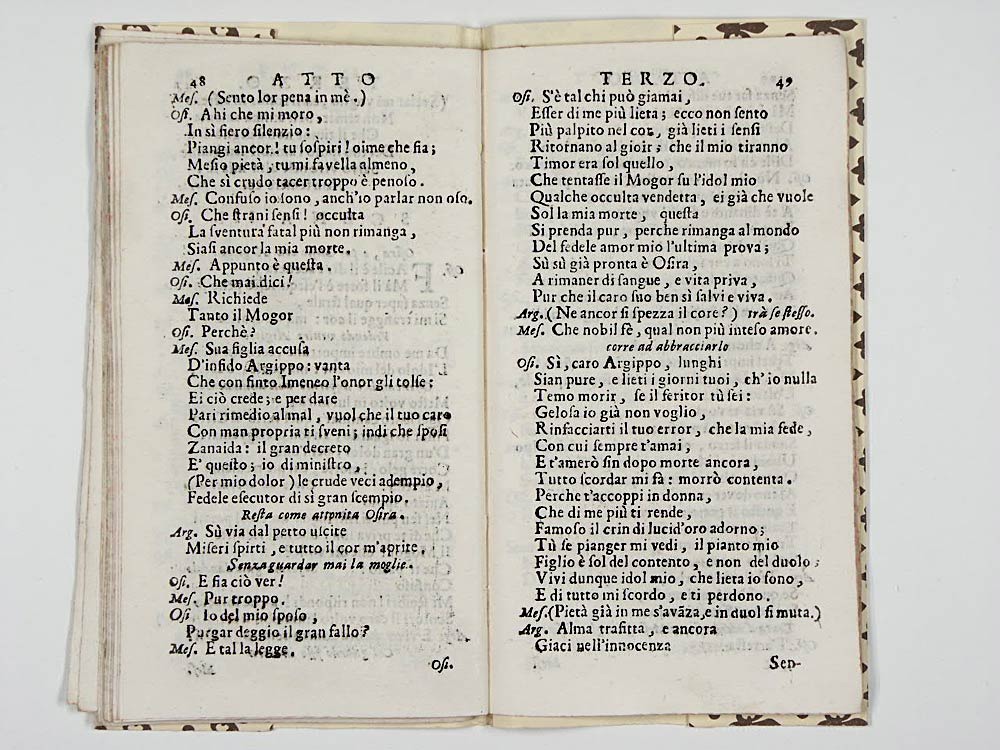 48 ATTO
Mes. (Sento lor pena in mè.)
Osi. Ahi che mi moro,
In sì fiero silenzio:
Piangi ancor! tu sospiri! oime che fia;
Mesio pietà, tu mi favella almeno,
Che sì crudo tacer troppo è penoso.
Mes. Confuso io sono, anch'io parlar non oso.
Osi. Che strani sensi! occulta
La sventura fatal più non rimanga,
Siasi ancor la mia morte.
Mes. Appunto è questa.
Osi. Che mai dici!
Mes. Richiede
Tanto il Mogor
Osi. Perchè?
Mes. Sua figlia accusa
D'infido Argippo: vanta
Che con finto Imeneo l'onor gli tolse:
Ei ciò crede; e per dare
Pari rimedio al mal, vuol che il tuo caro
Con man propria ti sveni; indi che sposi
Zanaida: il gran decreto
E' questo; io di ministro,
(Per mio dolor) le crude veci adempio,
Fedele esecutor di sì gran scempio.
Resta come attonita Osira.
Arg. Sù via dal petto uscite
Miseri spirti, e tutto il cor m'aprite.
Senza guardar mai la moglie.
Osi. E fia ciò ver!
Mes. Pur troppo.
Osi Io del mio sposo,
Purgar deggio il gran fallo?
Mes. E tal la legge.
Osi.
TERZO. 49
Osi. S'è tal chi può giamai,
Esser di me più lieta; ecco non sento
Più palpito nel cor, già lieti i sensi
Ritornano al gioir; che il mio tiranno
Timor era sol quello,
Che tentasse il Mogor su l'idol mio
Qualche occulta vendetta, ei già che vuole
Sol la mia morte, questa
Si prenda pur, perche rimanga al mondo
Del fedele amor mio l'ultima prova;
Sù sù già pronta è Osira,
A rimaner di sangue, e vita priva,
Pur che il caro suo ben sì salvi e viva.
Arg. (Ne ancor si spezza il core?) trà se stesso.
Mes. Che nobil fè, qual non più inteso amore.
corre ad abbracciarlo
Osi. Sì, caro Argippo, lunghi
Sian pure, e lieti i giorni tuoi, ch'io nulla
Temo morir, se il feritor tù sei:
Gelosa io già non voglio,
Rinfacciarti il tuo error, che la mia fede,
Con cui sempre t'amai;
E t'amerò sin dopo morte ancora,
Tutto scordar mi fà: morrò contenta.
Perche t'accoppi in donna,
Che di me più ti rende,
Famoso il crin di lucid'oro adorno;
Tù se pianger mi vedi, il pianto mio
Figlio è sol del contento, e non del duolo;
Vivi dunque idol mio, che lieta io sono,
E di tutto mi scordo, e ti perdono.
Mes. (Pietà già in me s'avãza, e in duol si muta.)
Arg. Alma trafitta, e ancora
Giaci nell'innocenza
Sen-